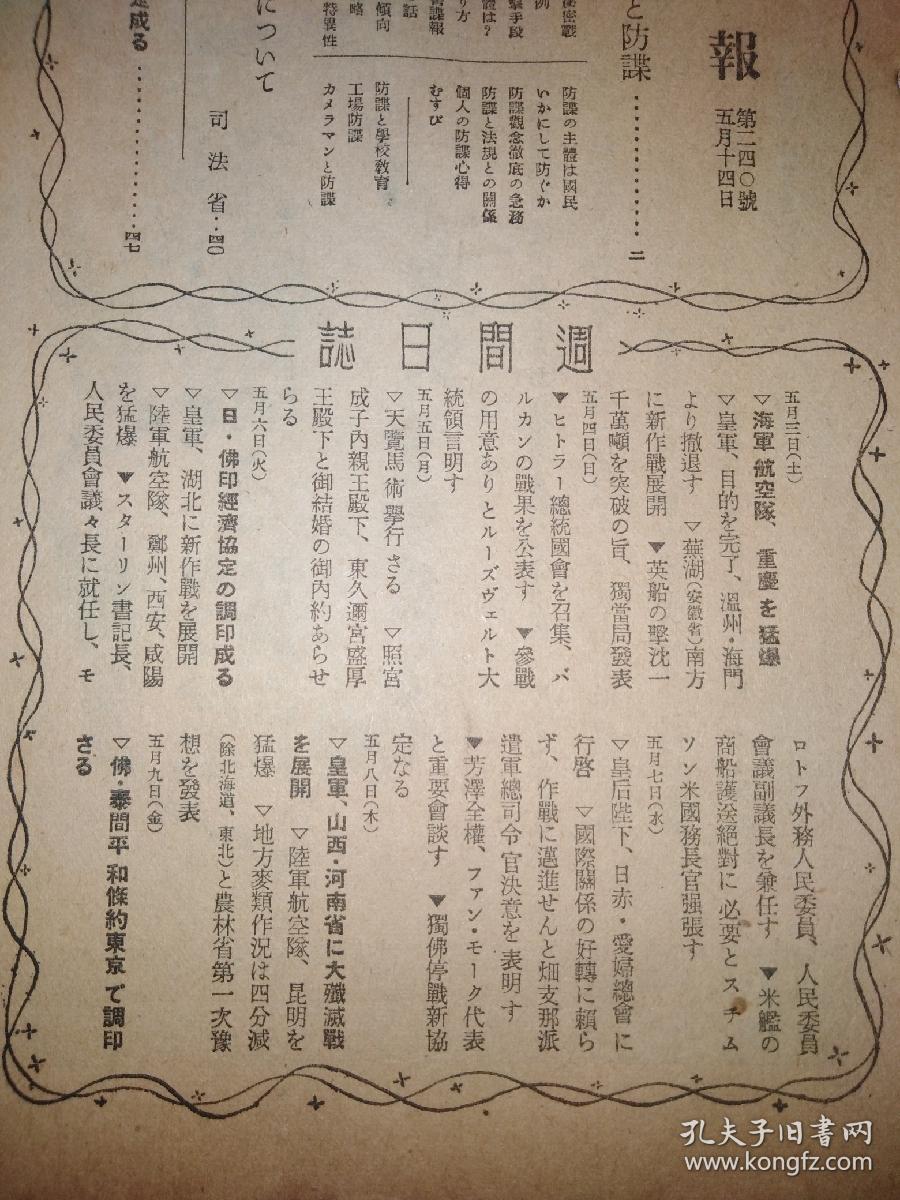 報
第二四〇號
五月十四日
と防諜……………二
防諜の主體は國民
いかにして防ぐか
防諜觀念徹底の急務
防諜と法規との關係
個人の防諜心得
むすび
防諜と學校敎育
工場防諜
カメラマンと防諜
祕密戰
例
擊手段
體は?
り方
諜報
話
傾向
略
特異性
について
司法省‥四〇
成る……………四七
週間日誌
五月三日(土)
▽海軍航空隊、重慶を猛爆
▽皇軍、目的を完了、溫州・海門
より撤退す ▽蕪湖(安徽省)南方
に新作戰展開 ▼英船の擊沈一
千萬噸を突破の旨、獨當局發表
五月四日(日)
▼ヒトラー總統國會を召集、バ
ルカンの戰果を公表す ▼參戰
の用意ありとルーズヴェルト大
統領言明す
五月五日(月)
▽天覽馬術擧行さる ▽照宮
成子內親王殿下、東久邇宮盛厚
王殿下と御結婚の御內約あらせ
らる
五月六日(火)
▽日・佛印經濟協定の調印成る
▽皇軍、湖北に新作戰を展開
▽陸軍航空隊、鄭州、西安、咸陽
を猛爆 ▼スターリン書記長、
人民委員會議々長に就任し、モ
ロトフ外務人民委員、人民委員
會議副議長を兼任す ▼米艦の
商船護送絕對に必要とスチム
ソン米國務長官强張す
五月七日(水)
▽皇后陛下、日赤・愛婦總會に
行啓 ▽國際關係の好轉に賴ら
ず、作戰に邁進せんと畑支那派
遣軍總司令官決意を表明す
▼芳澤全權、ファン・モーク代表
と重要會談す ▼獨佛停戰新協
定なる
五月八日(木)
▽皇軍、山西・河南省に大殲滅戰
を展開 ▽陸軍航空隊、昆明を
猛爆 ▽地方麥類作況は四分減
(除北海道、東北)と農林省第一次豫
想を發表
五月九日(金)
▽佛・泰間平和條約東京で調印
さる
孔夫子旧书网
www.kongfz.com